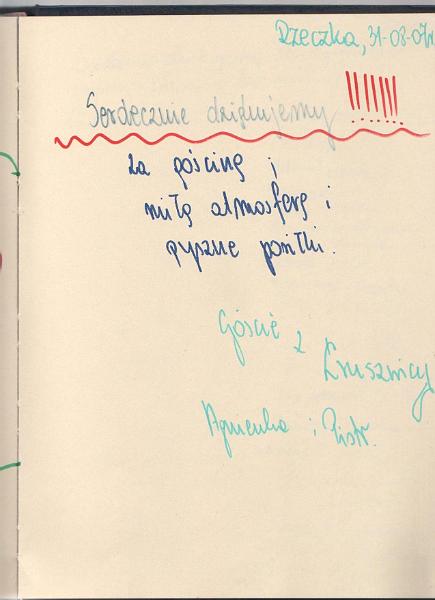 Rzeczka, 31-08-07r
Serdecznie dziękujemy !!!!!!!
za gościnę i
miłą atmosferę i
pyszne posiłki.
Goście z
Kruszwicy
Agnieszka i Piotr.